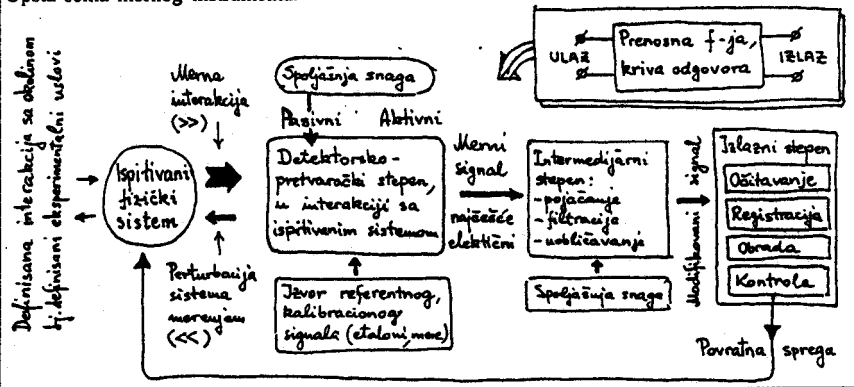 Opšta šema mernog instrumenta
Definisana interakcija sa okolinom
tj. definisani eksperimentalni uslovi
Ispitivani
fizički
sistem
Merna
interakcija
(>>)
Perturbacija
sistema
merenjem
(<<)
Spoljašnja snaga
Pasivni Aktivni
Detektorsko-
pretvarački stepen,
u interakciji sa
ispitivanim sistemom
Izvor referentnog,
kalibracionog
signala (etaloni, mere)
Merni
signal
najčešće
električni
Intermedijarni
stepen:
-pojačanje
-filtracija
-uobličavanje
Spoljašnja snaga
Modifikovani signal
ULAZ
Prenosna f-ja,
kriva odgovora
IZLAZ
Izlazni stepen
Očitavanje
Registracija
Obrada
Kontrola
Povratna sprega